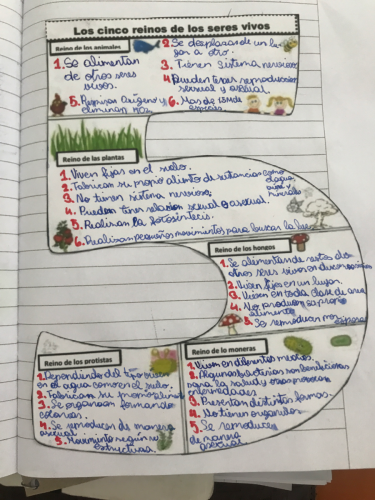 Los cinco reinos de los seres vivos
Reino de los animales
1. Se alimentan
de otros seres
vivos.
2. Se desplazan de un lu
gar a otro.
3. Tienen sistema nervioso
4. Pueden tener reproducción
sexual y asexual.
5. Respiran oxígeno y
eliminan
6. Mas de
especies
Reino de las plantas
1. Viven fijas en el suelo.
2. Fabrican su propio alimento de sustancias como
el agua,
aire y
minerales
3. No tienen sistema nervioso.
4. Pueden tener relación sexual o asexual.
5. Realizan la fotosíntesis.
6. Realizan pequeños movimientos para buscar la luz
Reino de los hongos
1. Se alimentan de restos de
otros seres vivos en
2. Viven fijos en un lugar.
3. Viven en toda clase de
4. No producen su propio
alimento
5. Se reproducen por esporas
Reino de los protistas
1. Dependiendo del tipo viven
en el agua como en el suelo.
2. Fabrican su propio alimento
3. Se organizan formando
colonias.
4. Se reproducen de manera
asexual
5. Movimiento según su
estructura
Reino de lo moneras
1. Viven en diferentes medios.
2. Algunas bacterias son beneficiosas
para la salud y otras provocan
enfermedades
3. Presentan distintas formas.
4. No tienen organulos.
5. Se reproduce
de manera
asexual